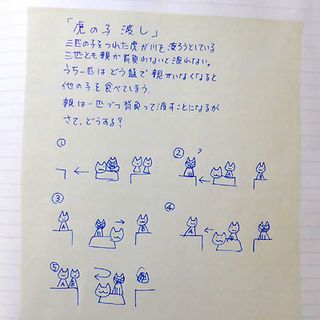 「虎の子渡し」
三匹の子をつれた虎が川を渡ろうとしている
三匹とも親が背負わないと渡れない。
うち一匹はどう猛で親がいなくなると
他の子を食べてしまう。
親は一匹づつ背負って渡すことになるが
さて、どうする?
①
②
③
④
⑤